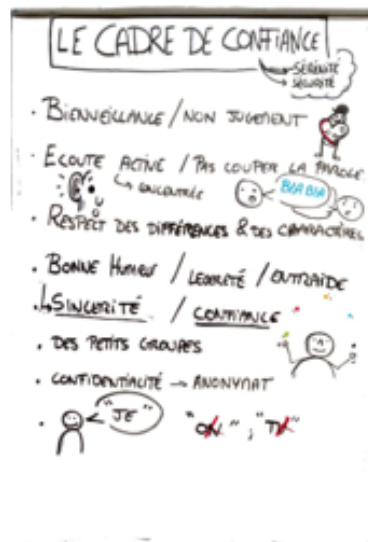 LE CADRE DE CONFIANCE
→ SÉRÉNITÉ
→ SÉCURITÉ
· BIENVEILLANCE / NON JUGEMENT
· ECOUTE ACTIVE / PAS COUPER LA PAROLE
↳ CONCENTRÉE
BLA BLA
· RESPECT DES DIFFÉRENCES & DES CARACTÈRES
· BONNE HUMEUR / LEGERETÉ / ENTRAIDE
↳ SINCERITÉ / CONFIANCE
· DES PETITS GROUPES
· CONFIDENTIALITÉ → ANONYMAT
· "JE" "ON" ; "TU"